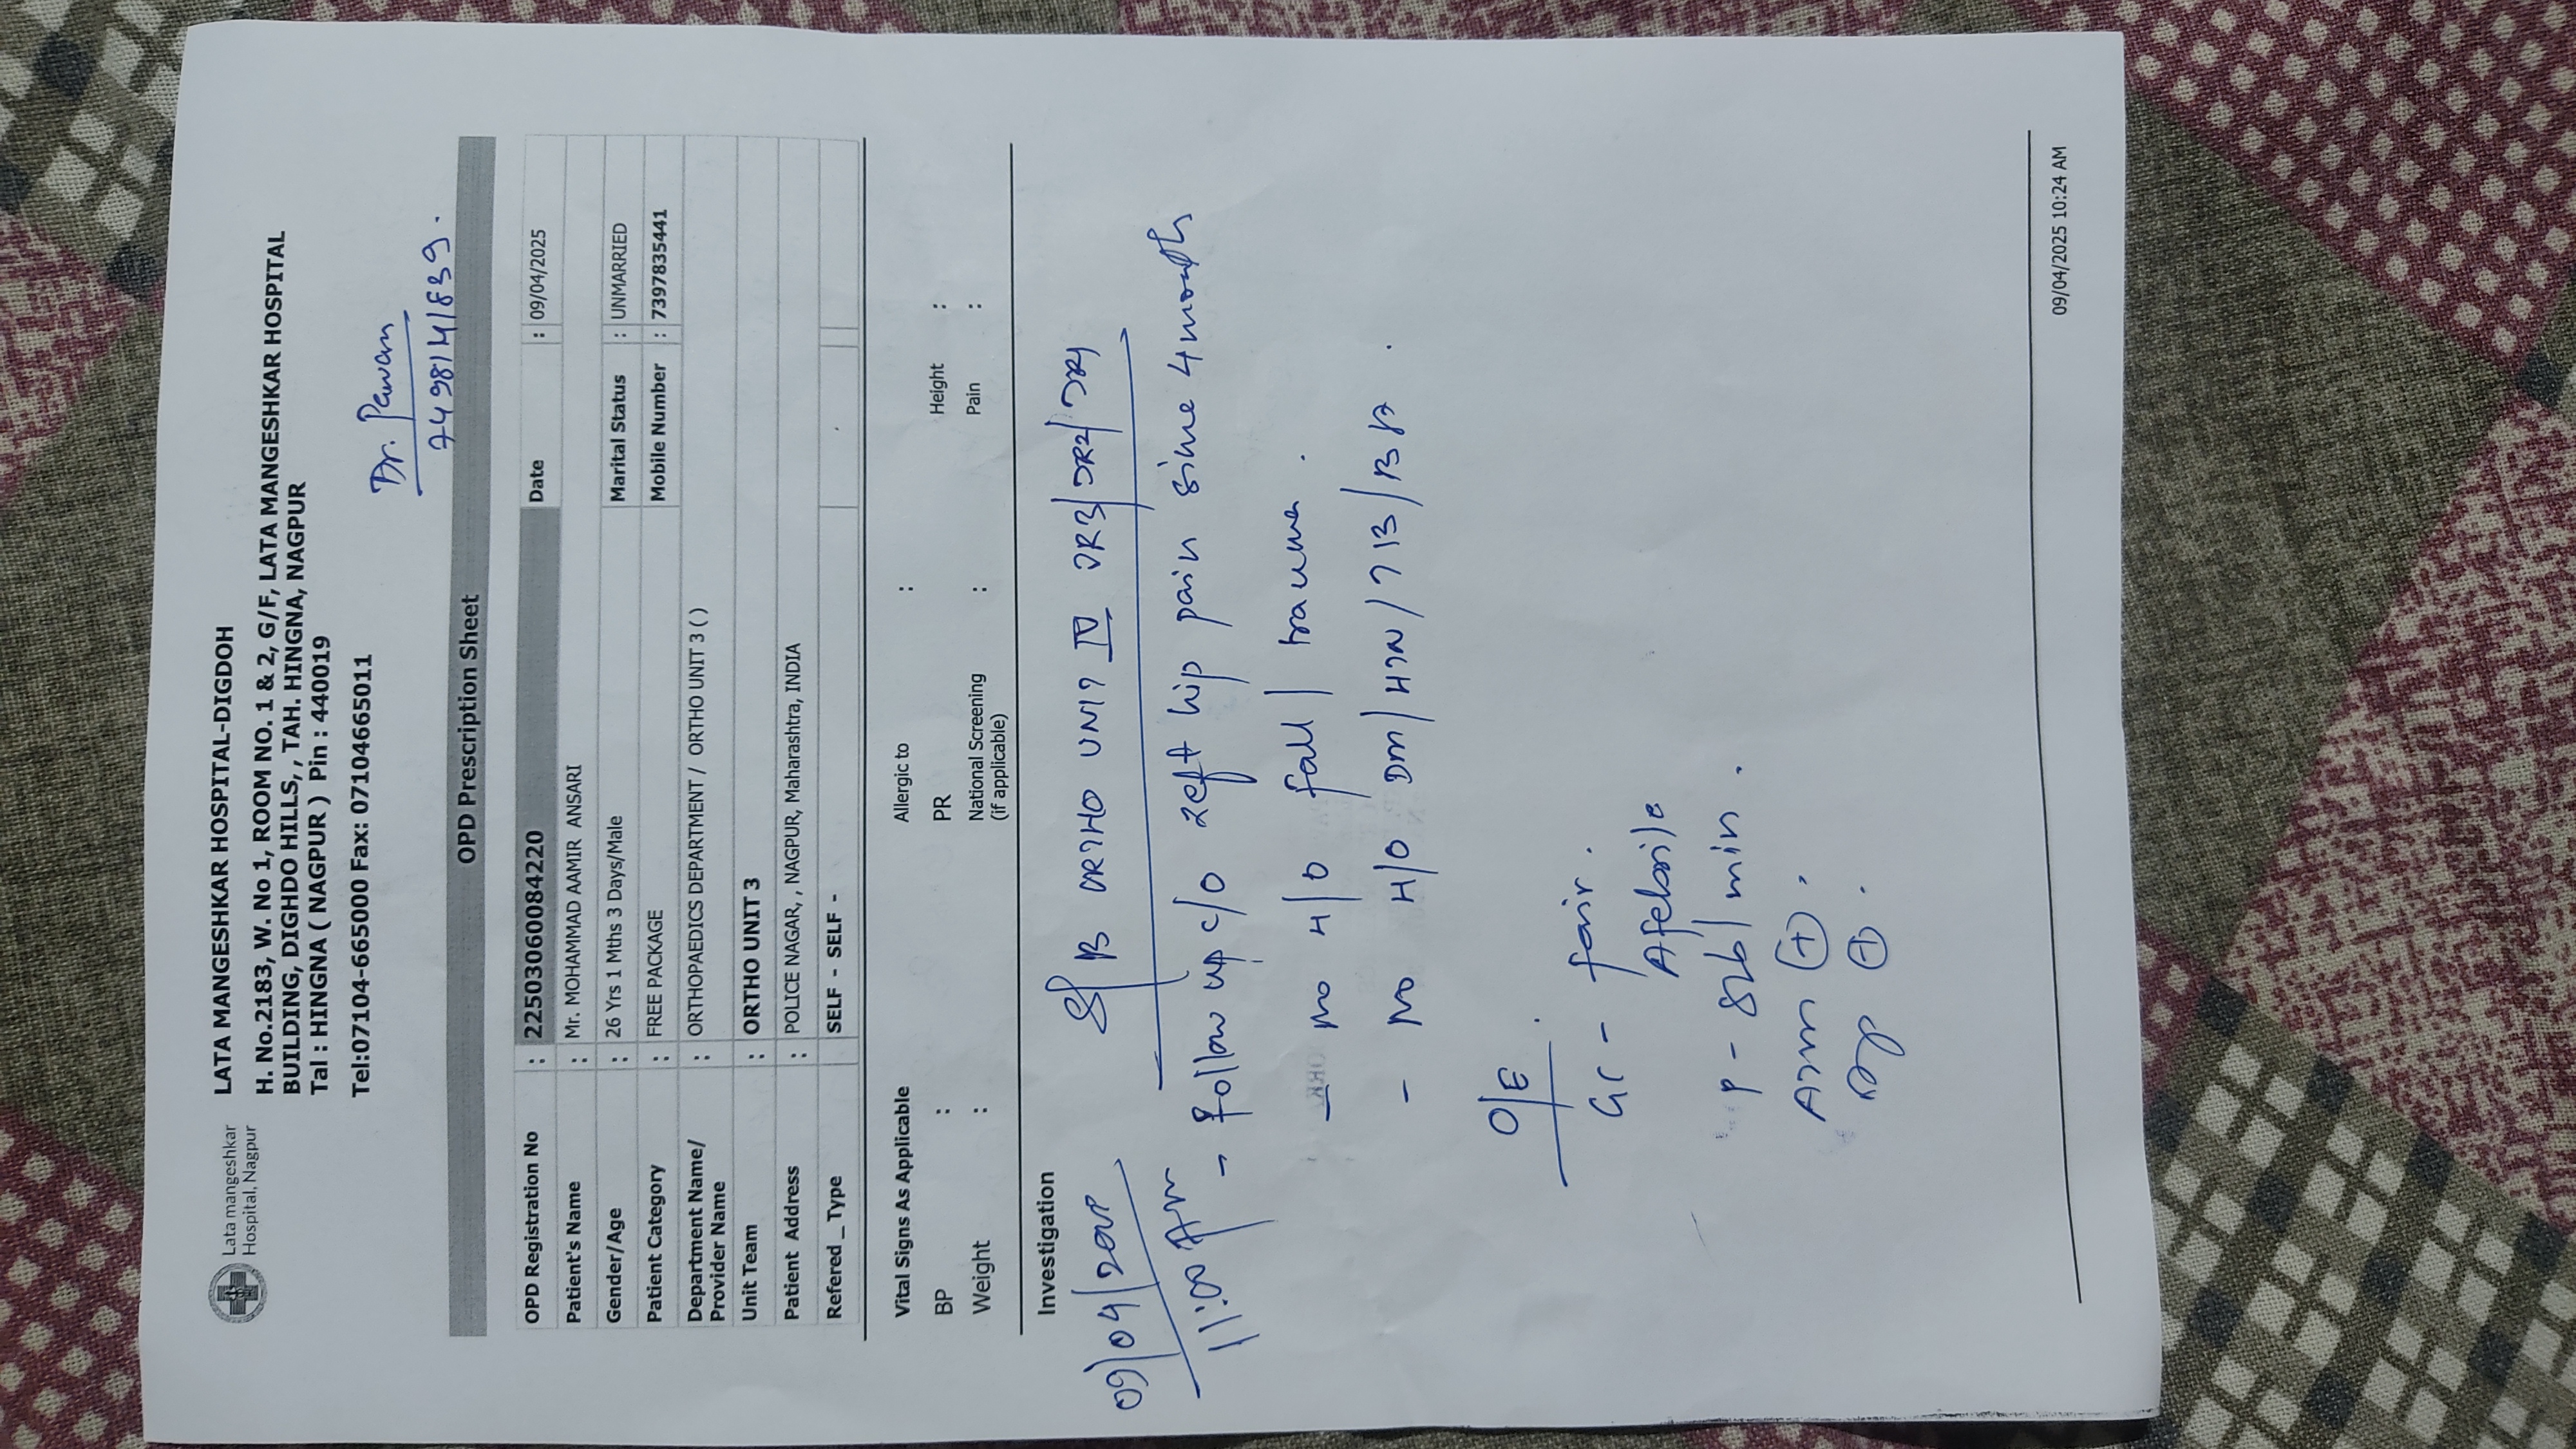 Lata mangeshkar
Hospital, Nagpur
LATA MANGESHKAR HOSPITAL-DIGDOH
H. No.2183, W. No 1, ROOM NO. 1 & 2, G/F, LATA MANGESHKAR HOSPITAL
BUILDING, DIGHDO HILLS, , TAH. HINGNA, NAGPUR
Tal : HINGNA ( NAGPUR ) Pin : 440019
Tel:07104-665000 Fax: 07104665011
Dr. Pawan
7498141839.
OPD Prescription Sheet
OPD Registration No : 22503060084220 Date : 09/04/2025
Patient's Name : Mr. MOHAMMAD AAMIR ANSARI
Gender/Age : 26 Yrs 1 Mths 3 Days/Male Marital Status : UNMARRIED
Patient Category : FREE PACKAGE Mobile Number : 7397835441
Department Name/ Provider Name : ORTHOPAEDICS DEPARTMENT / ORTHO UNIT 3 ( )
Unit Team : ORTHO UNIT 3
Patient Address : POLICE NAGAR, , NAGPUR, Maharashtra, INDIA
Refered _ Type : SELF - SELF -
Vital Signs As Applicable Allergic to :
BP : PR Height :
Weight : National Screening (if applicable) : Pain :
Investigation
09/04/2025 S/B ORTHO UNIT IV JR3/JR2/JR1
11:00 Am
- Follow up c/o Left hip pain since 4 month
- no H/O fall / trauma.
- No H/O DM/HTN/TB/BA.
O/E
GC - fair.
Afebrile
P - 82b/min.